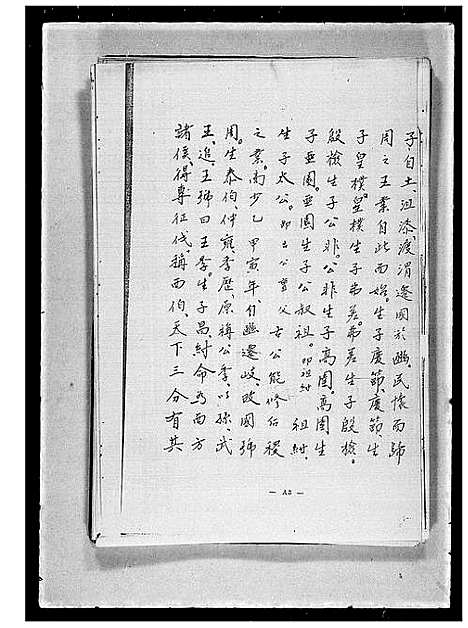 子自土、沮漆、渡渭遷國於豳、民懷而歸
周之王業自此而始。生子慶節、慶節、生
子皇樸。皇樸生子弗差。弗差生子殷
殷檢生子公非。公非生子高圉、高圉生
子亜圉。亜圉生子公叔祖。即祖紺 祖紺、
生子太公。即古公亶父 古公能修后稷
之業。商少乙甲寅年、自豳遷岐、改國號
周。生泰伯、仲雍季歷、原稱公季、以孫、武
王、追王號曰王季。生子昌、紂命為西方
諸侯、得專征伐、稱西伯、天下三分有其